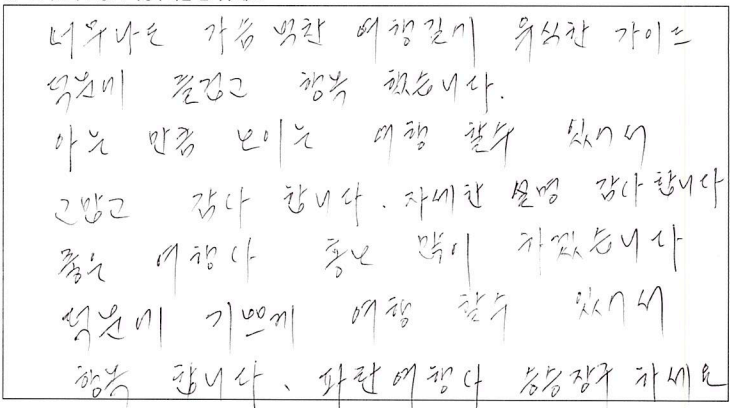 너무나도 가슴 벅찬 여행길에 유식한 가이드
덕분에 즐겁고 행복 했습니다.
아는 만큼 보이는 여행 할수 있어서
고맙고 감사 합니다. 자세한 설명 감사합니다
좋은 여행사 홍보 많이 하겠습니다
덕분에 기쁘게 여행 할수 있어서
행복 합니다. 파란여행사 승승장구 하세요